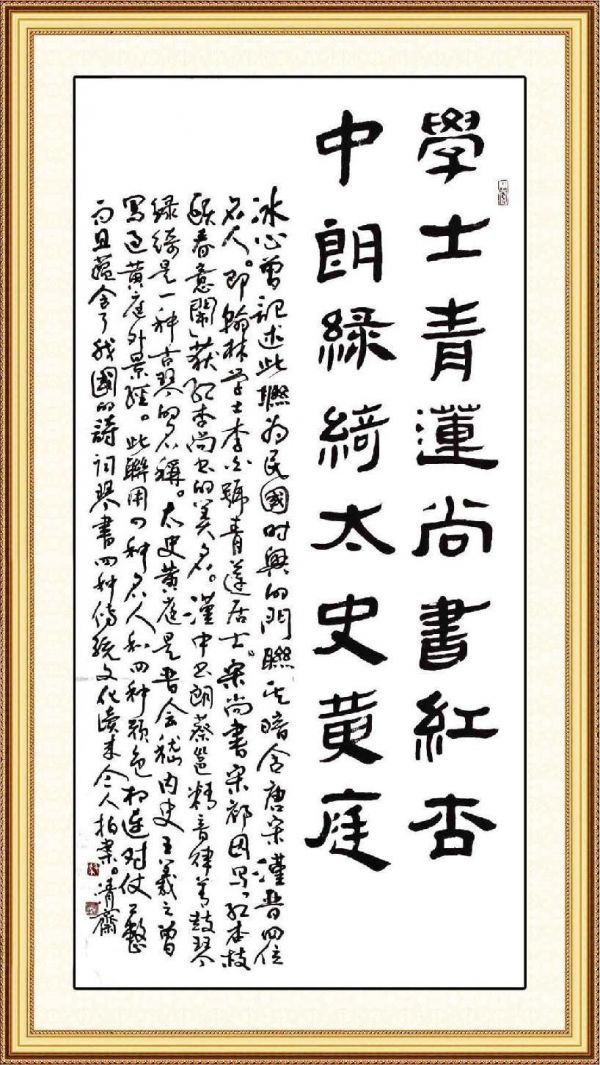 學士青蓮尚書紅杏
中朗綠綺太史黄庭
冰心曾記述此聯为民國时興的门聯其暗含唐宋漢晋四位
名人。即翰林学士李白號青莲居士。宋尚書宋祁因写“红杏枝
头春意闹”获红杏尚书的美名。漢中朗蔡邕精音律善鼓琴
绿绮是一种古琴的名稱。太史黄庭是晋会稽内史王羲之曾
写过黄庭外景經。此聯用四种名人和四种颜色相连对仗工整
而且蕴含了我國的詩词琴書四种传统文化读来令人拍案。清齋